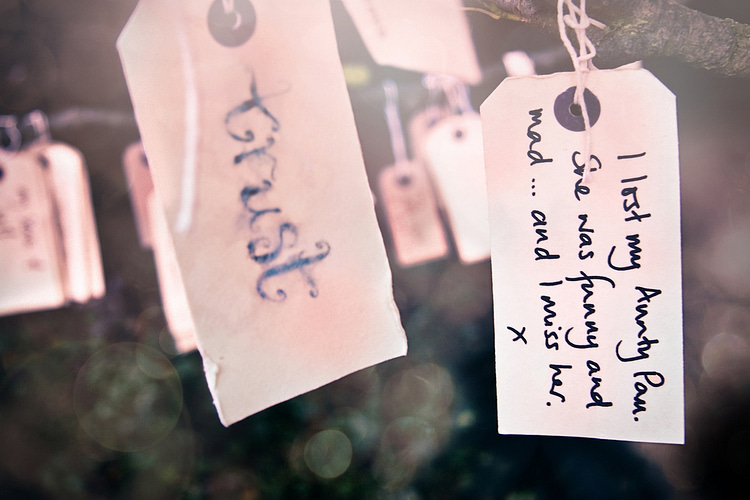 trust
I lost my Aunty Pam.
She was funny and
mad... and I miss her.
x